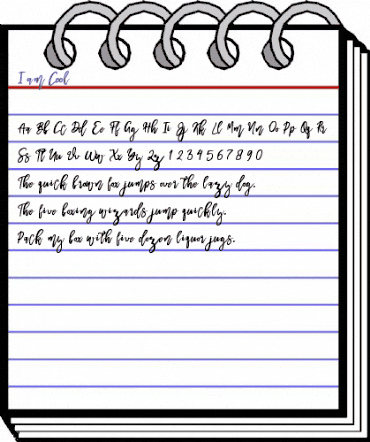 I am Cool
Aa Bb Cc Dd Ee Ff Gg Hh Ii Jj Kk Ll Mm Nn Oo Pp Qq Rr
Ss Tt Uu Vv Ww Xx Yy Zz 1 2 3 4 5 6 7 8 9 0
The quick brown fox jumps over the lazy dog.
The five boxing wizards jump quickly.
Pack my box with five dozen liquor jugs.